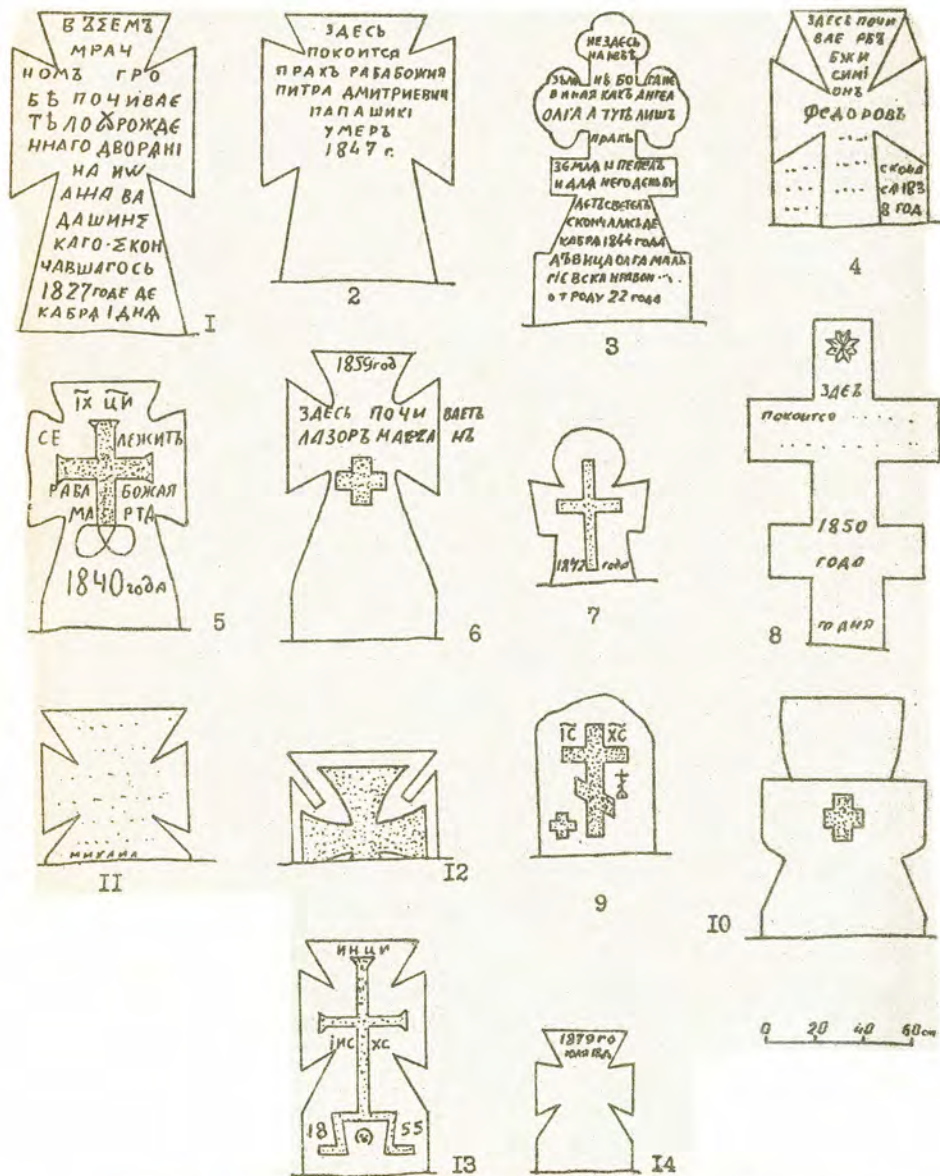 ВЪΣЕМЪ
МРАЧ
НОМЪ ГРО
БѢ ПОЧИВАЕ
ТѢЛО УРОЖДѢ
ННАГО ДВОРѦНІ
НА ИѠ
АННА ВА
ДАШИНΣ
КАГО·ΣКОН
ЧАВШАГОСЬ
1827 ГОДЕ ДЕ
КАБРА I ДНѦ
I
ЗДЕСЬ
ПОКОИТСЯ
ПРАХЪ РАБА БОЖИЯ
ПИТРА ДМИТРИЕВИЧ
ПАПАШИКІ
УМЕР
1847 г.
2
НЕ ЗДЕСЬ
НА НЕБѢ
НѢ БО
ВИНАЯ КАКЪ АНГЕЛ
ОЛІГА А ТУТЬ ЛИШЪ
ПРАХЪ
ЗЕМЛА И ПЕПЕЛЪ
И ДЛА НЕГО ДЕНЬ БУ
ДЕТЪ СВЕТЕЛЪ
СКОНЧАЛАСЬ ДЕ
КАБРА 1844 ГОДА
ДѢВИЦА ОЛГА МАЛЬ
ГІЕВСКА
ОТ РОДУ 22 ГОДА
3
ЗДЕСЬ ПОЧИ
ВАЕ РБЪ
БЖИ
СИМІ
ОНЪ
ФЕДОРОВЪ
СКОНЧ
СЯ 183
8 ГОД
4
IХ ЦИ
СЕ ЛЕЖИТЪ
РАБА БОЖАЯ
МА РТА
1840 года
5
1859 год
ЗДЕСЬ ПОЧИ ВАЕТЬ
ЛАЗОРЪ НЪ
6
184 года
7
ЗДЕЪ
ПОКОИТСЯ
1850
ГОДА
ГО ДНЯ
8
МИХАИЛ
II
I2
IС ХС
9
I0
0 20 40 60 см
ИНЦИ
IИС ХС
18 55
I3
1879 ГО
ЮЛЯ
I4